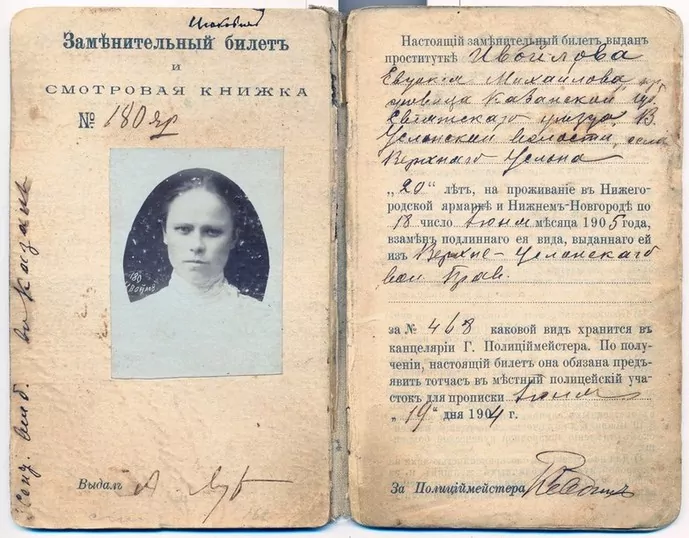 Замѣнительный билетъ
и
СМОТРОВАЯ КНИЖКА
№ 180 яр
180
Выдалъ
Настоящій замѣнительный билетъ выданъ
проституткѣ Ивойлова
Евдокия Михайлова,
Казанской губ.
Свіяжскаго уѣзда, В.
Услонской волости, села
Верхняго Услона
„20“ лѣтъ, на проживаніе въ Нижего-
родской ярмаркѣ и Нижнемъ-Новгородѣ по
18 число Іюня мѣсяца 1905 года,
взамѣнъ подлиннаго ея вида, выданнаго ей
изъ Верхне-Услонскаго
вол. Прав.
за № 468 каковой видъ хранится въ
канцеляріи Г. Полиціймейстера. По полу-
ченіи, настоящій билетъ она обязана предъ-
явить тотчасъ въ мѣстный полицейскій уча-
стокъ для прописки Іюня
„19“ дня 1904 г.
За Полиціймейстера